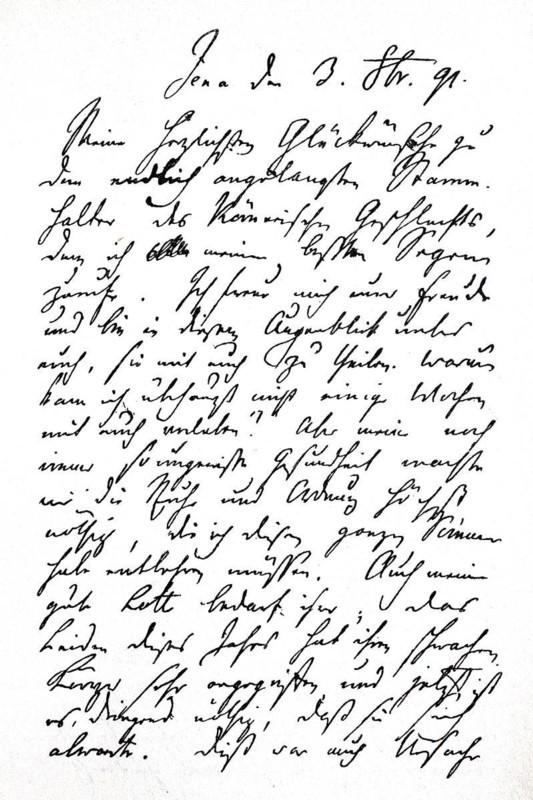 Jena den 3. 8br. 91.
Meine herzlichsten Glückwünsche zu
dem endlich angelangten Stamm-
halter des Körnerischen Geschlechts,
dem ich meinen beßten Segen
zurufe. Ich freue mich eurer Freude
und bin in diesem Augenblick unter
euch, sie mit euch zu theilen. Warum
kann ich überhaupt nicht einige Wochen
mit euch verleben? Aber meine noch
immer so ungewisse Gesundheit machte
mir die Ruhe und Ordnung höchst
nöthig, die ich diesen ganzen Sommer
habe entbehren müssen. Auch meine
gute Lotte bedarf ihrer; das
Leiden dieses Jahrs hat ihren schwachen
Körper sehr angegriffen, und jetzt ist
es dringend nöthig, daß sie sich
abwarte. Dieß war auch Ursache